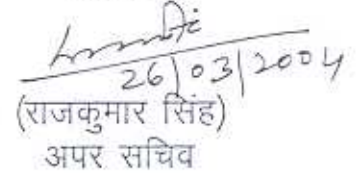 26/03/2004
(राजकुमार सिंह)
अपर सचिव